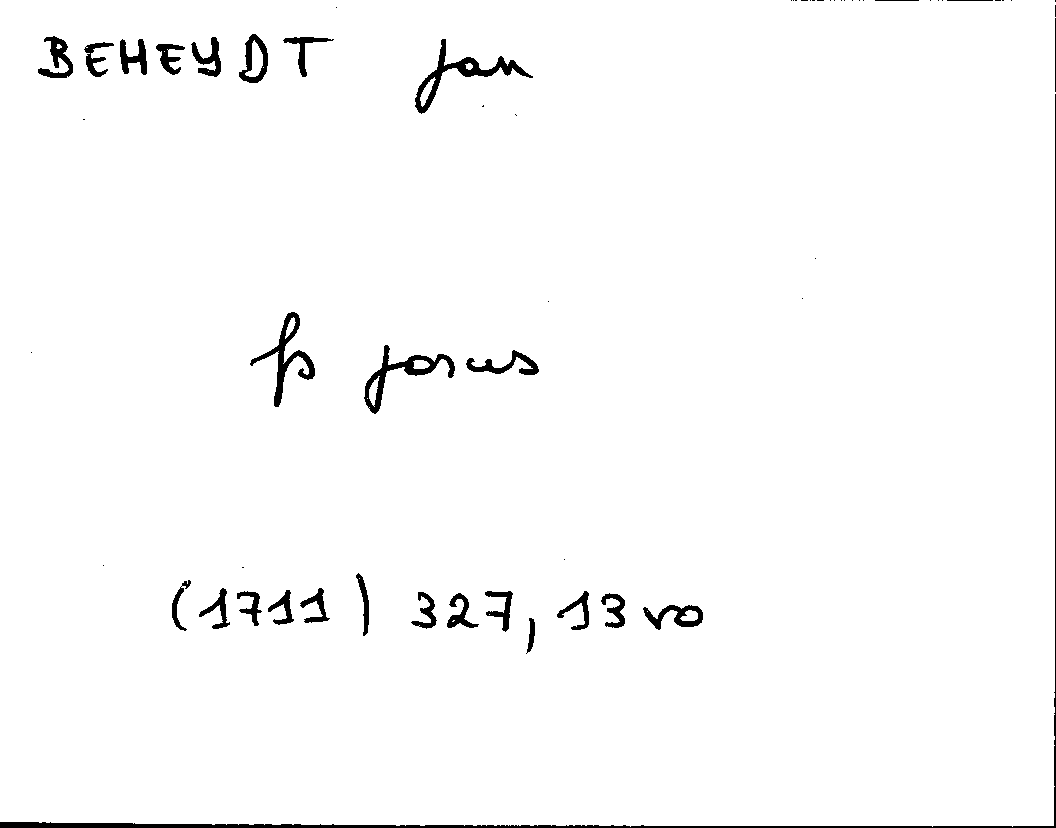 BEHEYDT Jan
fs Jorus
(1711) 327, 13 vo